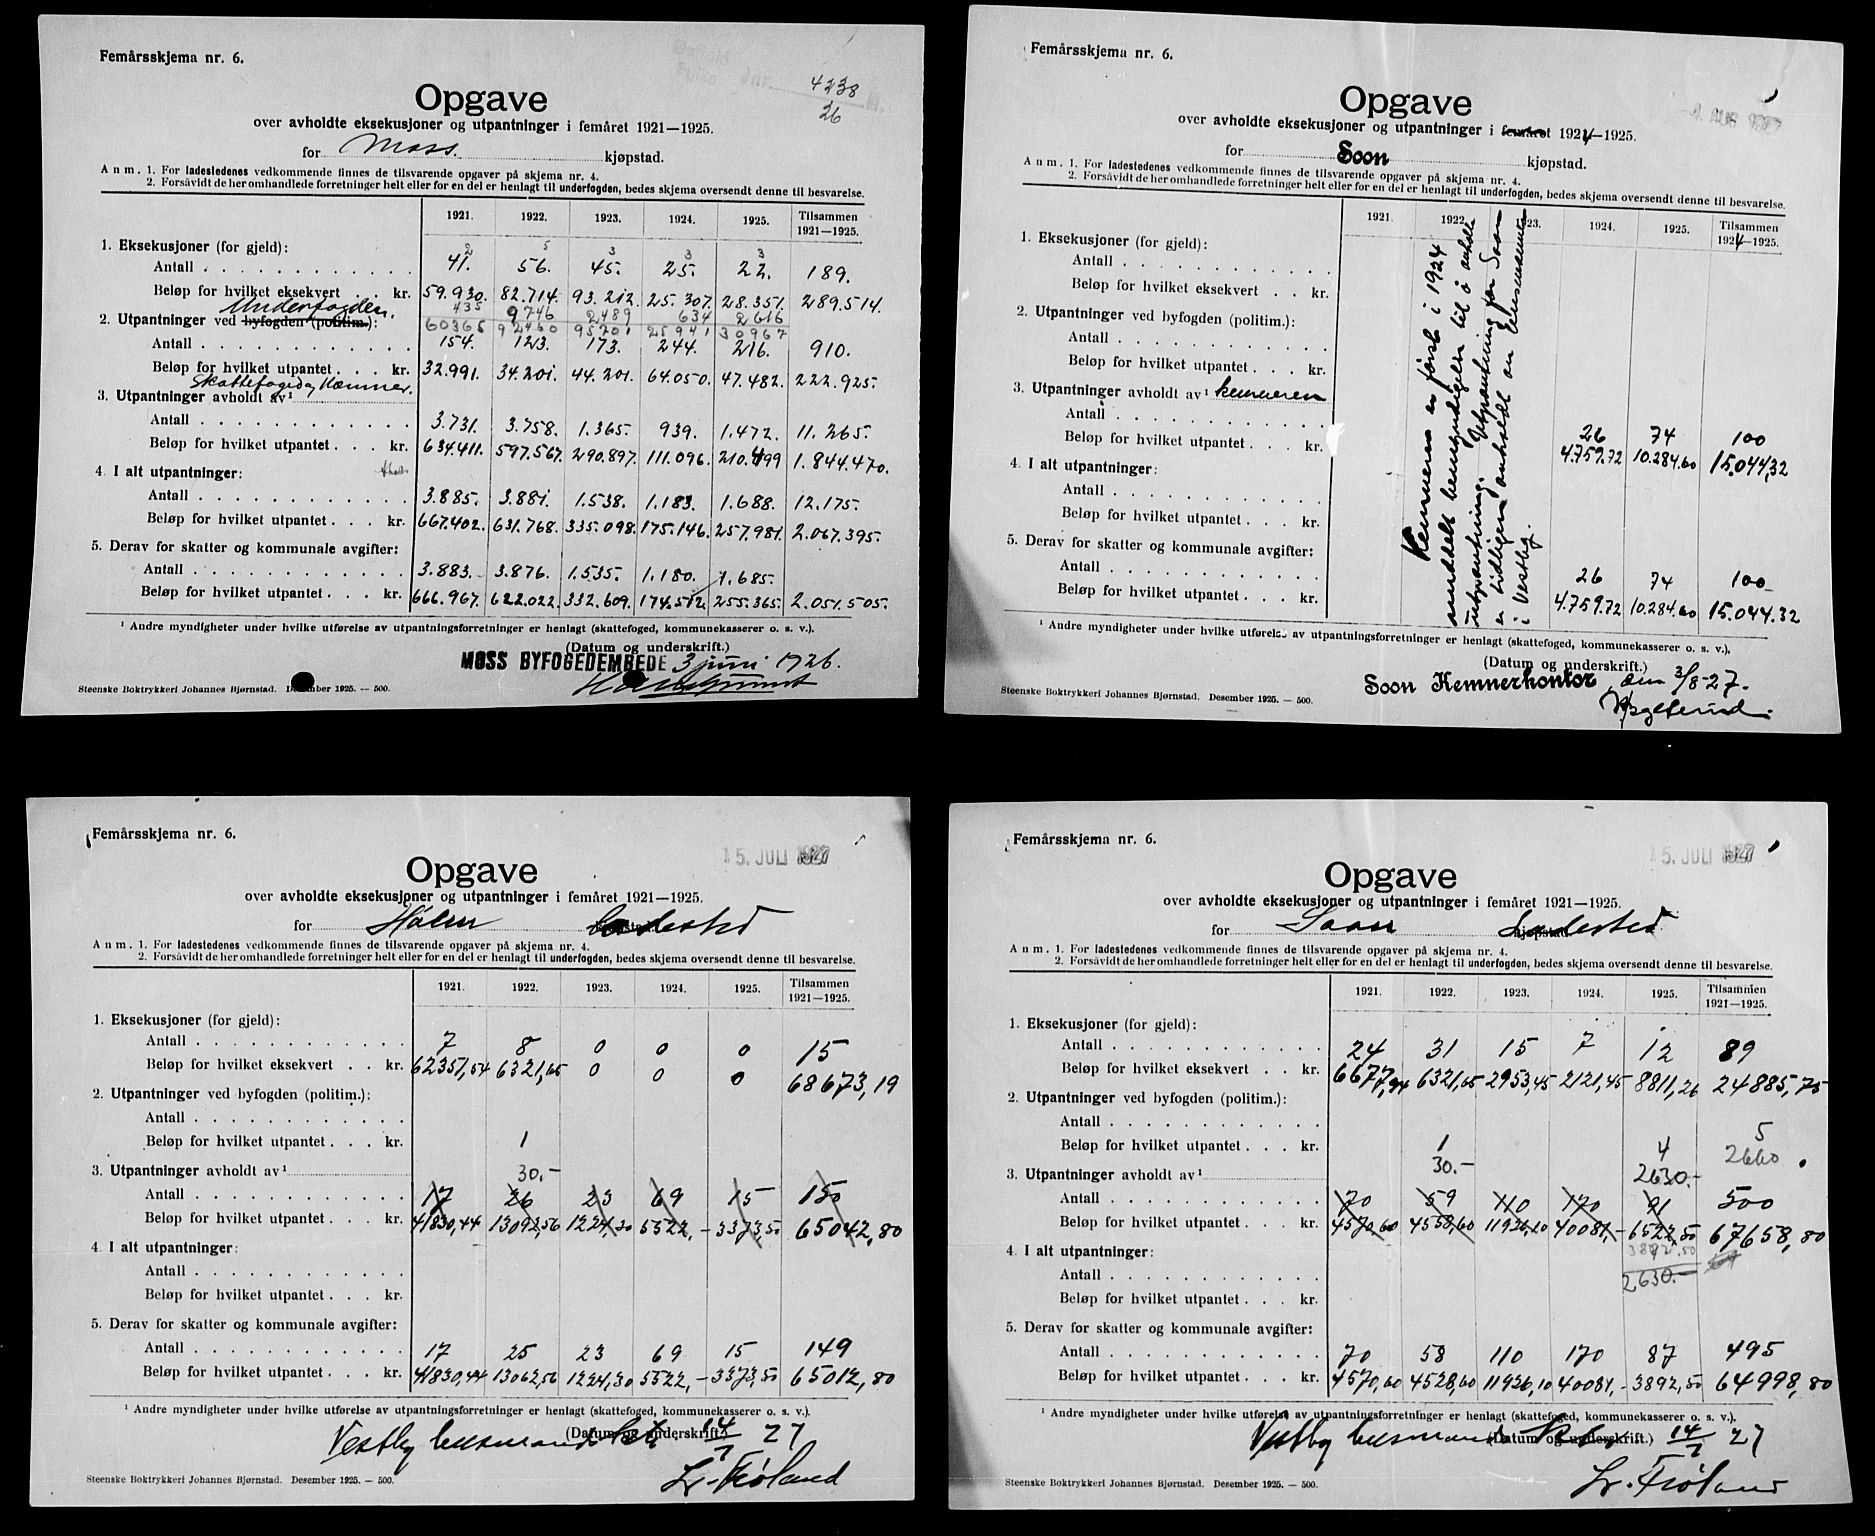 Femårsskjema nr. 6.
4238
26
Opgave
over avholdte eksekusjoner og utpantninger i femåret 1921—1925.
for Moss. kjøpstad.
Anm. 1. For ladestedenes vedkommende finnes de tilsvarende opgaver på skjema nr. 4.
2. Forsåvidt de her omhandlede forretninger helt eller for en del er henlagt til underfogden, bedes skjema oversendt denne til besvarelse.
1921. 1922. 1923. 1924. 1925. Tilsammen 1921—1925.
1. Eksekusjoner (for gjeld):
2 5 3 3 3
Antall 41. 56. 45. 25. 22. 189.
Beløp for hvilket eksekvert kr. 59.930. 82.714. 93.212. 25.307. 28.351. 289.514.
Underfogden.
435 9746 2489 634 2616
2. Utpantninger ved byfogden (politim.):
60365 92460 95701 25941 30967
Antall 154. 123. 173. 244. 216. 910.
Beløp for hvilket utpantet kr. 32.991. 34.201. 44.201. 64.050. 47.482. 222.925.
Skattefoged og Kæmner.
3. Utpantninger avholdt av¹
Antall 3.731. 3.758. 1.365. 939. 1.472. 11.265.
Beløp for hvilket utpantet kr. 634.411. 597.567. 290.897. 111.096. 210.499 1.844.470.
4. I alt utpantninger:
Antall 3.885. 3.881. 1.538. 1.183. 1.688. 12.175.
Beløp for hvilket utpantet kr. 667.402. 631.768. 335.098. 175.146. 257.981. 2.067.395.
5. Derav for skatter og kommunale avgifter:
Antall 3.883. 3.876. 1.535. 1.180. 1.685.
Beløp for hvilket utpantet kr. 666.967. 622.022. 332.609. 174.512. 255.365. 2.051.505.
¹ Andre myndigheter under hvilke utførelse av utpantningsforretninger er henlagt (skattefoged, kommunekasserer o. s. v.).
(Datum og underskrift.)
MOSS BYFOGEDEMBEDE 3 juni 1926.
Steenske Boktrykkeri Johannes Bjørnstad. Desember 1925. — 500.
Femårsskjema nr. 6.
AUG 1927
Opgave
over avholdte eksekusjoner og utpantninger i femåret 1924—1925.
for Soon kjøpstad.
Anm. 1. For ladestedenes vedkommende finnes de tilsvarende opgaver på skjema nr. 4.
2. Forsåvidt de her omhandlede forretninger helt eller for en del er henlagt til underfogden, bedes skjema oversendt denne til besvarelse.
1921. 1922. 1923. 1924. 1925. Tilsammen 1924—1925.
Kemneren er først i 1924
meddelt bemyndigelse til å avholde
utpantning. Utpantning for Soon
er tidligere avholdt av lensmannen
i Vestby.
1. Eksekusjoner (for gjeld):
Antall
Beløp for hvilket eksekvert kr.
2. Utpantninger ved byfogden (politim.):
Antall
Beløp for hvilket utpantet kr.
3. Utpantninger avholdt av¹ kemneren
Antall 26 74 100
Beløp for hvilket utpantet kr. 4.759.72 10.284.60 15.044,32
4. I alt utpantninger:
Antall
Beløp for hvilket utpantet kr.
5. Derav for skatter og kommunale avgifter:
Antall 26 74 100
Beløp for hvilket utpantet kr. 4.759.72 10.284.60 15.044.32
¹ Andre myndigheter under hvilke utførelse av utpantningsforretninger er henlagt (skattefoged, kommunekasserer o. s. v.).
(Datum og underskrift.)
Soon Kemnerkontor, den 3/8-27.
Steenske Boktrykkeri Johannes Bjørnstad. Desember 1925. — 500.
Femårsskjema nr. 6.
15. JULI 1927
Opgave
over avholdte eksekusjoner og utpantninger i femåret 1921—1925.
for Hølen Ladested
Anm. 1. For ladestedenes vedkommende finnes de tilsvarende opgaver på skjema nr. 4.
2. Forsåvidt de her omhandlede forretninger helt eller for en del er henlagt til underfogden, bedes skjema oversendt denne til besvarelse.
1921. 1922. 1923. 1924. 1925. Tilsammen 1921—1925.
1. Eksekusjoner (for gjeld):
Antall 7 8 0 0 0 15
Beløp for hvilket eksekvert kr. 62351,54 6321,65 0 0 0 68673,19
2. Utpantninger ved byfogden (politim.):
Antall
Beløp for hvilket utpantet kr. 1
3. Utpantninger avholdt av¹ 30.-
Antall 17 26 23 69 15 150
Beløp for hvilket utpantet kr. 41830,44 13092,56 1224,30 5522,- 3373,50 65042,80
4. I alt utpantninger:
Antall
Beløp for hvilket utpantet kr.
5. Derav for skatter og kommunale avgifter:
Antall 17 25 23 69 15 149
Beløp for hvilket utpantet kr. 41830,44 13062,56 1224,30 5522,- 3373,50 65012,80
¹ Andre myndigheter under hvilke utførelse av utpantningsforretninger er henlagt (skattefoged, kommunekasserer o. s. v.).
(Datum og underskrift.)
Vestby lensmand 14/7 27
Steenske Boktrykkeri Johannes Bjørnstad. Desember 1925. — 500.
Lr. Frøland
Femårsskjema nr. 6.
15. JULI 1927
Opgave
over avholdte eksekusjoner og utpantninger i femåret 1921—1925.
for Soon kjøpstad. Ladested
Anm. 1. For ladestedenes vedkommende finnes de tilsvarende opgaver på skjema nr. 4.
2. Forsåvidt de her omhandlede forretninger helt eller for en del er henlagt til underfogden, bedes skjema oversendt denne til besvarelse.
1921. 1922. 1923. 1924. 1925. Tilsammen 1921—1925.
1. Eksekusjoner (for gjeld):
Antall 24 31 15 7 12 89
Beløp for hvilket eksekvert kr. 6677,94 6321,65 2953,45 2121,45 8811,26 24885,75
2. Utpantninger ved byfogden (politim.):
Antall 5
Beløp for hvilket utpantet kr. 1 4 2660
3. Utpantninger avholdt av¹ 30.- 2630.-
Antall 70 59 110 170 91 500
Beløp for hvilket utpantet kr. 4570,60 4558,60 11926,10 40081,- 6522,50 67658,80
4. I alt utpantninger: 3892.50
Antall 2630.-
Beløp for hvilket utpantet kr.
5. Derav for skatter og kommunale avgifter:
Antall 70 58 110 170 87 495
Beløp for hvilket utpantet kr. 4570,60 4528,60 11926,10 40081,- 3892,50 64998,80
¹ Andre myndigheter under hvilke utførelse av utpantningsforretninger er henlagt (skattefoged, kommunekasserer o. s. v.).
(Datum og underskrift.)
Vestby lensmand 14/7 27
Steenske Boktrykkeri Johannes Bjørnstad. Desember 1925. — 500.
Lr. Frøland